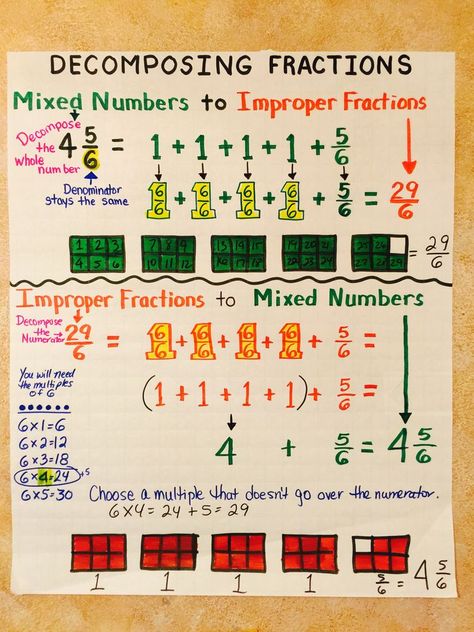 DECOMPOSING FRACTIONS
Mixed Numbers to Improper Fractions
Decompose the whole number
4 5/6 = 1 + 1 + 1 + 1 + 5/6
Denominator stays the same
6/6 + 6/6 + 6/6 + 6/6 + 5/6 = 29/6
1 2 3 7 8 9 13 14 15 19 20 21 25 26
4 5 6 10 11 12 16 17 18 22 23 24 27 28 29
= 29/6
Improper Fractions to Mixed Numbers
Decompose the Numerator
29/6 = 6/6 + 6/6 + 6/6 + 6/6 + 5/6 =
(1 + 1 + 1 + 1) + 5/6 =
4 + 5/6 = 4 5/6
You will need the multiples of 6
6x1=6
6x2=12
6x3=18
6x4=24 +5
6x5=30
Choose a multiple that doesn't go over the numerator.
6x4=24+5=29
1 1 1 1 5/6 = 4 5/6